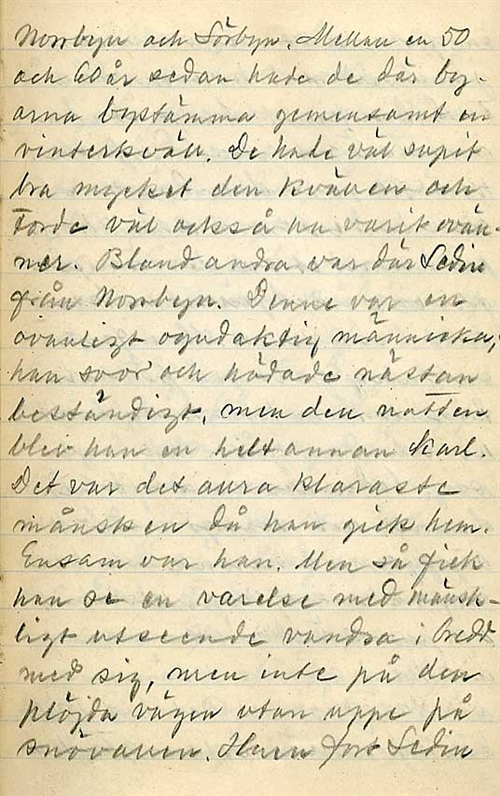 Norrbyn och Sörbyn. Mellan en 50
och 60 år sedan hade de där by-
arna bystämma gemensamt en
vinterkväll. De hade väl supit
bra mycket den kvällen och
torde väl också ha varit ovän-
ner. Bland andra var där Sedin
från Norrbyn. Denne var en
ovanligt ogudaktig människa,
han svor och hädade nästan
beständigt, men den natten
blev han en helt annan karl.
Det var det aura klaraste
månsken då han gick hem.
Ensam var han. Men så fick
han se en varelse med mänsk-
ligt utseende vandra i bredd
med sig, men inte på den
plöjda vägen utan uppe på
snövallen. Huru fort Sedin